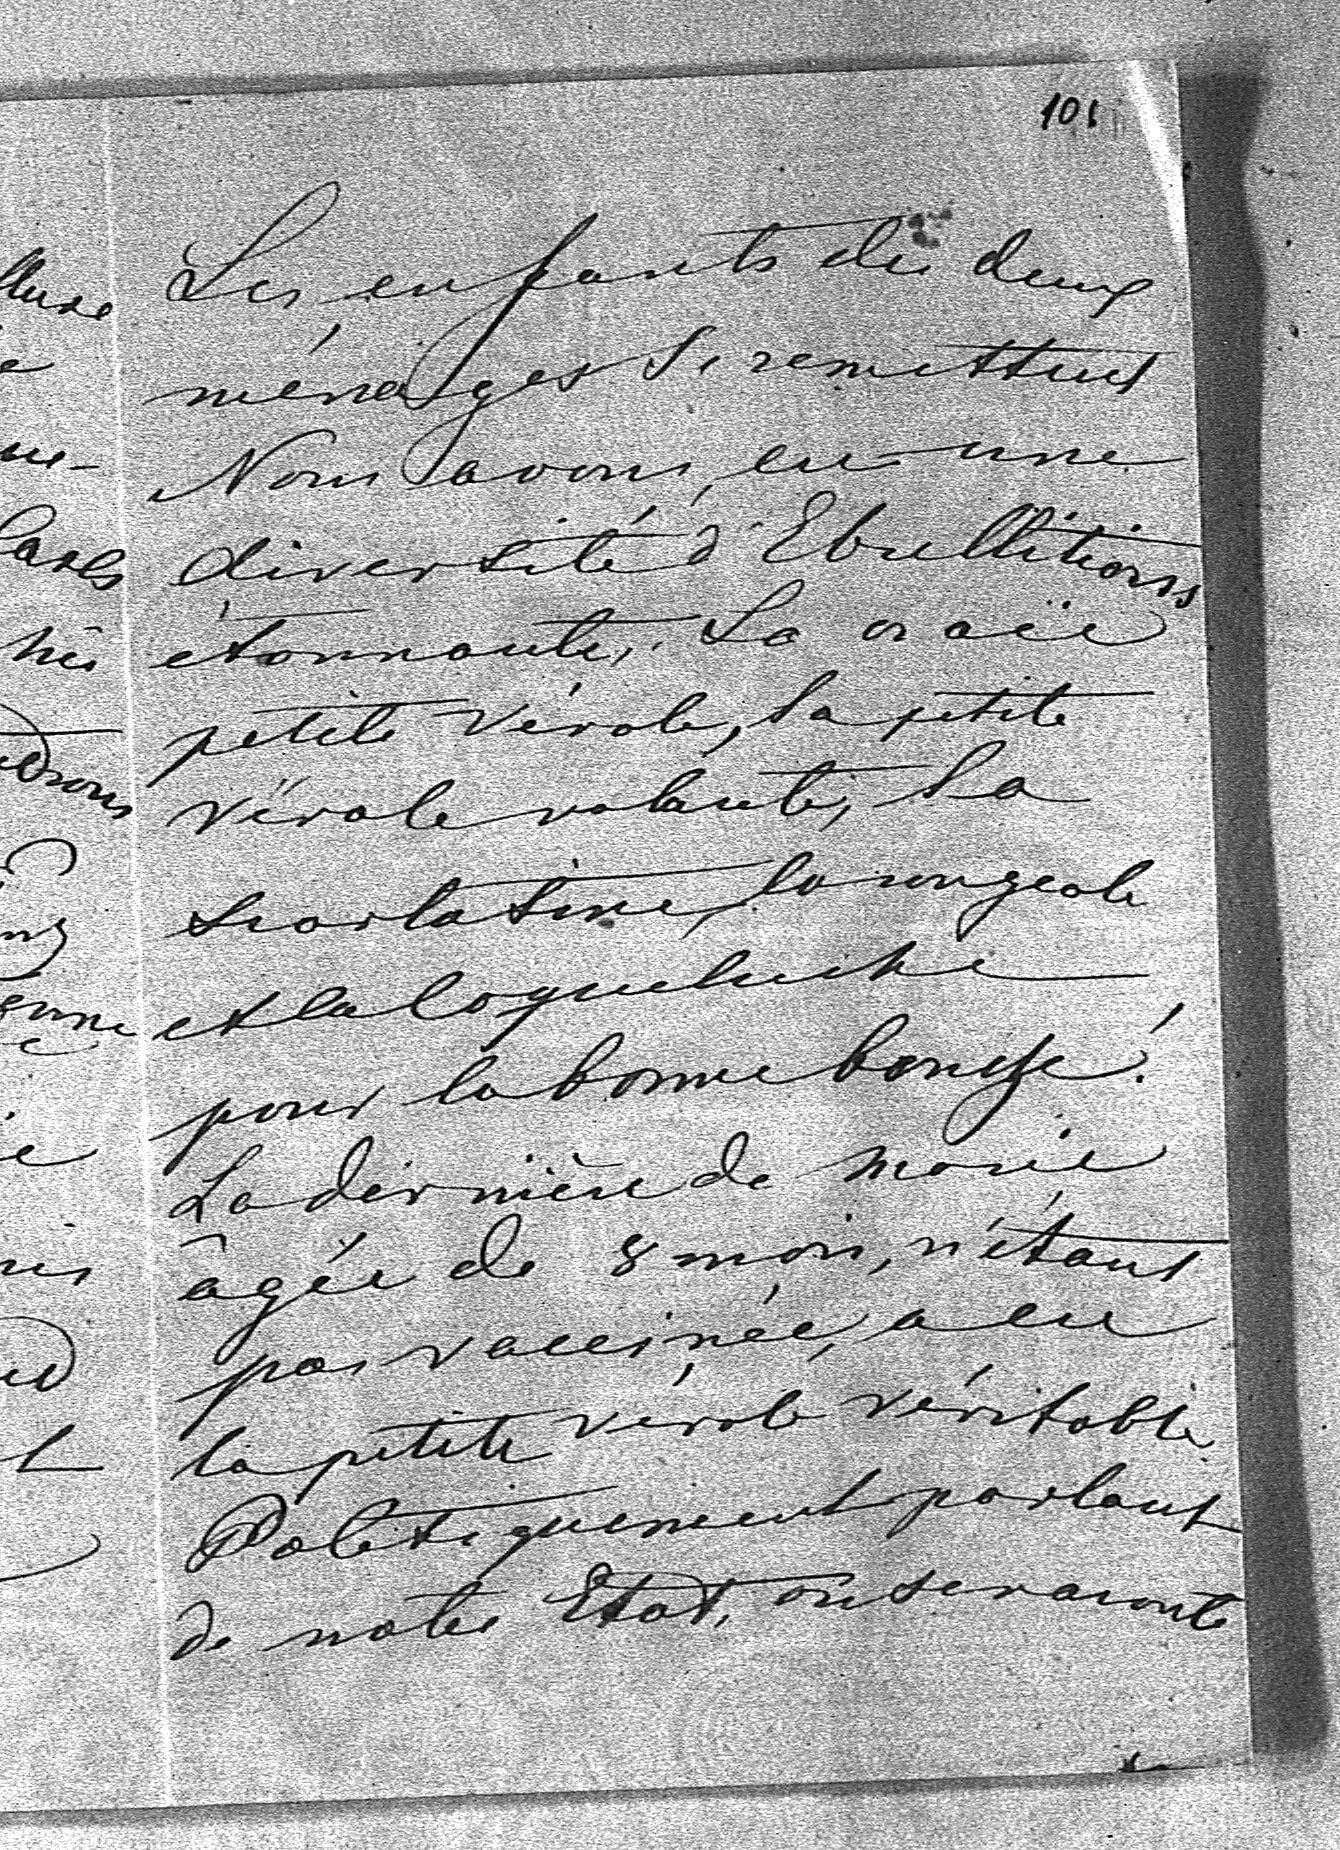 101
Les enfants des deux
ménages se remettent
Nous avons eu une
diversité d'Ebullitions
étonnante. La vraie
petite vérole, la petite
vérole volante, la
scarlatine, la rougeole
et la coqueluche
pour la bonne bouche!
La dernière de Marie
âgée de 8 mois, n'étant
pas vaccinée, a eu
la petite vérole véritable
Politiquement parlant
de notre Etat,